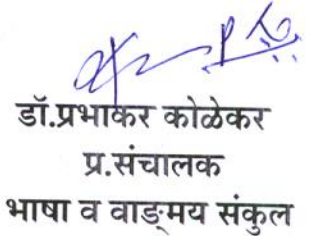 डॉ.प्रभाकर कोळेकर
प्र.संचालक
भाषा व वाङ्मय संकुल